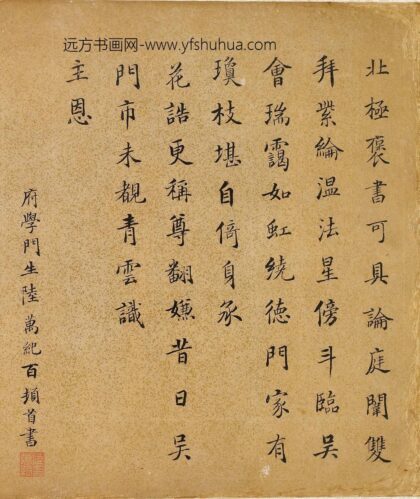 远方书画网-www.yfshuhua.com
北極褒書可具論庭闈雙
拜紫綸温法星傍斗臨吳
會瑞靄如虹繞德門家有
瓊枝堪自倚身承
花誥更稱尊翻嫌昔日吳
門市未覩青雲識
主恩
府學門生陸萬紀百頓首書